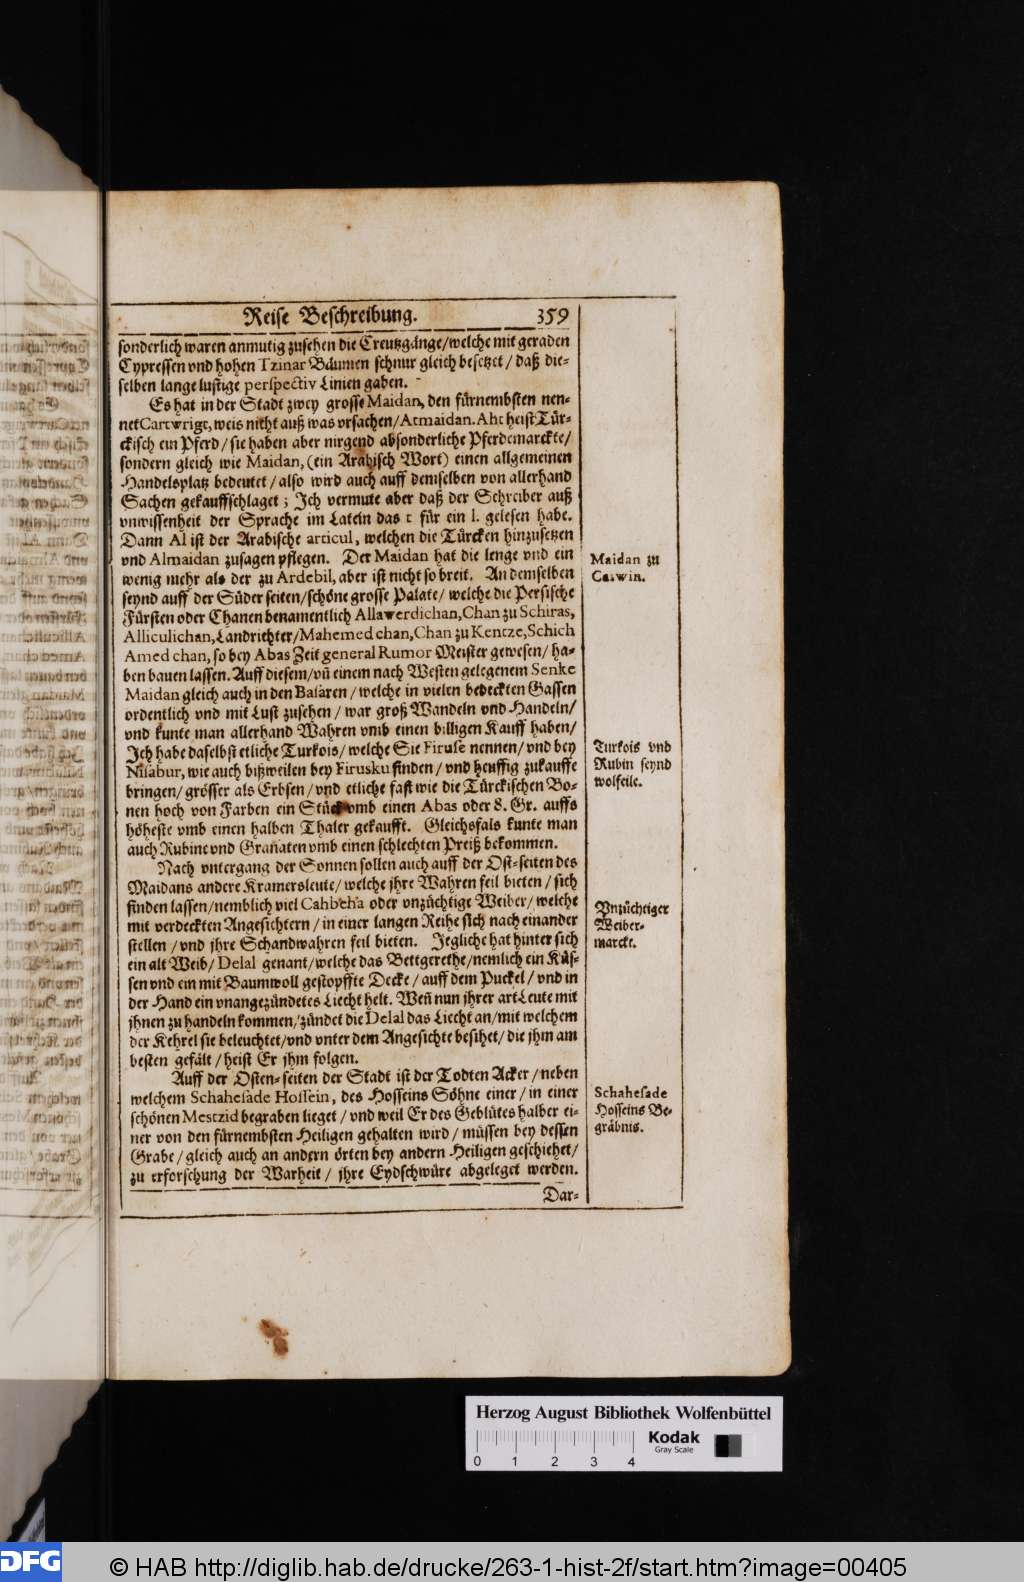 Reise Beschreibung. 359
sonderlich waren anmutig zusehen die Creutzgänge/welche mit geraden
Cypressen vnd hohen Tzinar Bäumen schnur gleich besetzet/ daß die-
selben lange lustige perspectiv Linien gaben.
Es hat in der Stadt zwey grosse Maidan, den fürnembsten nen-
net Cartwrigt, weis nicht auß was vrsachen/Atmaidan. Aht heist Tür-
ckisch ein Pferd/ sie haben aber nirgend absonderliche Pferdemarckte/
sondern gleich wie Maidan, (ein Arabisch Wort) einen allgemeinen
Handelsplatz bedeutet/ also wird auch auff demselben von allerhand
Sachen gekauffschlaget; Jch vermute aber daß der Schreiber auß
vnwissenheit der Sprache im Latein das t für ein l. gelesen habe.
Dann Al ist der Arabische articul, welchen die Türcken hinzusetzen
vnd Almaidan zusagen pflegen. Der Maidan hat die lenge vnd ein
wenig mehr als der zu Ardebil, aber ist nicht so breit. An demselben
seynd auff der Süder seiten/schöne grosse Palate/ welche die Persische
Fürsten oder Chanen benamentlich Allawerdichan, Chan zu Schiras,
Alliculichan, Landrichter/Mahemed chan, Chan zu Kentze, Schich
Amed chan, so bey Abas Zeit general Rumor Meister gewesen/ ha-
ben bauen lassen. Auff diesem/vñ einem nach Westen gelegenem Senke
Maidan gleich auch in den Basaren/ welche in vielen bedeckten Gassen
ordentlich vnd mit Lust zusehen/ war groß Wandeln vnd Handeln/
vnd kunte man allerhand Wahren vmb einen billigen Kauff haben/
Jch habe daselbst etliche Turkois/ welche Sie Firuse nennen/ vnd bey
Nisabur, wie auch bißweilen bey Firusku finden/ vnd heuffig zukauffe
bringen/ grösser als Erbsen/ vnd etliche fast wie die Türckischen Bo-
nen hoch von Farben ein Stück vmb einen Abas oder 8. Gr. auffs
höheste vmb einen halben Thaler gekaufft. Gleichsfals kunte man
auch Rubine vnd Granaten vmb einen schlechten Preiß bekommen.
Nach vntergang der Sonnen sollen auch auff der Ost-seiten des
Maidans andere Kramersleute/ welche jhre Wahren feil bieten/ sich
finden lassen/nemblich viel Cahbeha oder vnzüchtige Weiber/ welche
mit verdeckten Angesichtern/ in einer langen Reihe sich nach einander
stellen/ vnd jhre Schandwahren feil bieten. Jegliche hat hinter sich
ein alt Weib/ Delal genant/ welche das Bettgerethe/nemlich ein Küs-
sen vnd ein mit Baumwoll gestopffte Decke/ auff dem Puckel/ vnd in
der Hand ein vnangezündetes Liecht helt. Weñ nun jhrer art Leute mit
jhnen zu handeln kommen/ zündet die Delal das Liecht an/ mit welchem
der Kehrel sie beleuchtet/vnd vnter dem Angesichte besihet/ die jhm am
besten gefält/ heist Er jhm folgen.
Auff der Osten-seiten der Stadt ist der Todten Acker/ neben
welchem Schahesade Hossein, des Hosseins Söhne einer/ in einer
schönen Mestzid begraben lieget/ vnd weil Er des Geblütes halber ei-
ner von den fürnembsten Heiligen gehalten wird/ müssen bey dessen
Grabe/ gleich auch an andern örten bey andern Heiligen geschiehet/
zu erforschung der Warheit/ jhre Eydschwüre abgeleget werden.
Dar-
Maidan zu
Caswin.
Turkois vnd
Rubin seynd
wolfeile.
Vnzüchtiger
Weiber-
marckt.
Schahesade
Hosseins Be-
gräbnis.
Herzog August Bibliothek Wolfenbüttel
Kodak
Gray Scale
0 1 2 3 4
DFG
© HAB http://diglib.hab.de/drucke/263-1-hist-2f/start.htm?image=00405